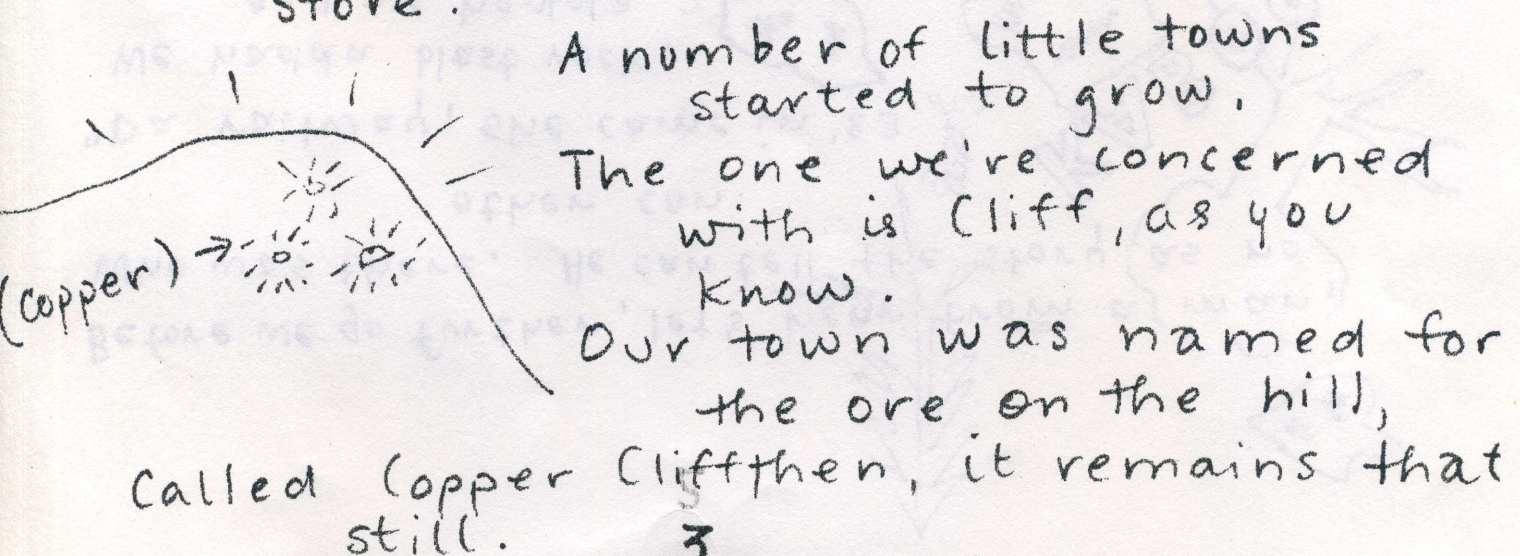 store.
A number of little towns
started to grow.
The one we're concerned
with is Cliff, as you
know.
(copper) →
Our town was named for
the ore on the hill,
Called Copper Cliff then, it remains that
still.
5
3